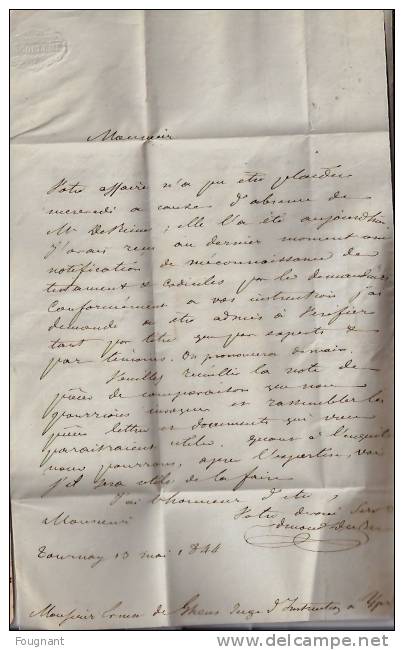 Monsieur
Votre affaire n'a pu être plaidée
mercredi a cause d'absence de
Mr ; elle l'a été aujourdhui
J'avais reçu au dernier moment une
notification de méconnaissance de
testament & codicules par le demandeur
Conformément a vos instructions j'ai
demandé a être admis à verifier
tant par titre que par experts &
par temoins. On prononcera demain.
Veuillez recueillir la note de
pièces de comparaison que nous
pourrions invoquer et rassembler les
pièces lettres et documents qui vous
paraitraient utile. Quant à l'enquete
nous pourrons, apres l'expertise, voir
s'il sera utile de la faire
J'ai l'honneur d'etre,
Monsieur Votre devoué Serv
Tournay 13 mai 1844
Monsieur de Ghens Juge d'Instruction a Ypres
Fougnant
delcampe.net